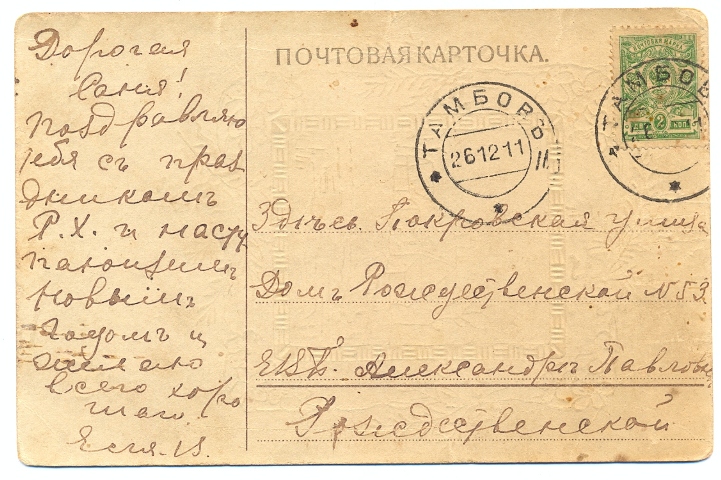 Дорогая
Саня!
поздравляю
тебя съ праз
дникомъ
Р. Х. и насту
пающимъ
новымъ
годомъ и
желаю
всего хоро
шаго.
ПОЧТОВАЯ КАРТОЧКА.
ТАМБОВЪ
26 12 11
ПОЧТОВАЯ МАРКА
2 КОП
ТАМБОВ
Здѣсь. Покровская улица
Домъ Рождественской № 53.
ЕВБ. Александрѣ Павловнѣ
Рождественской